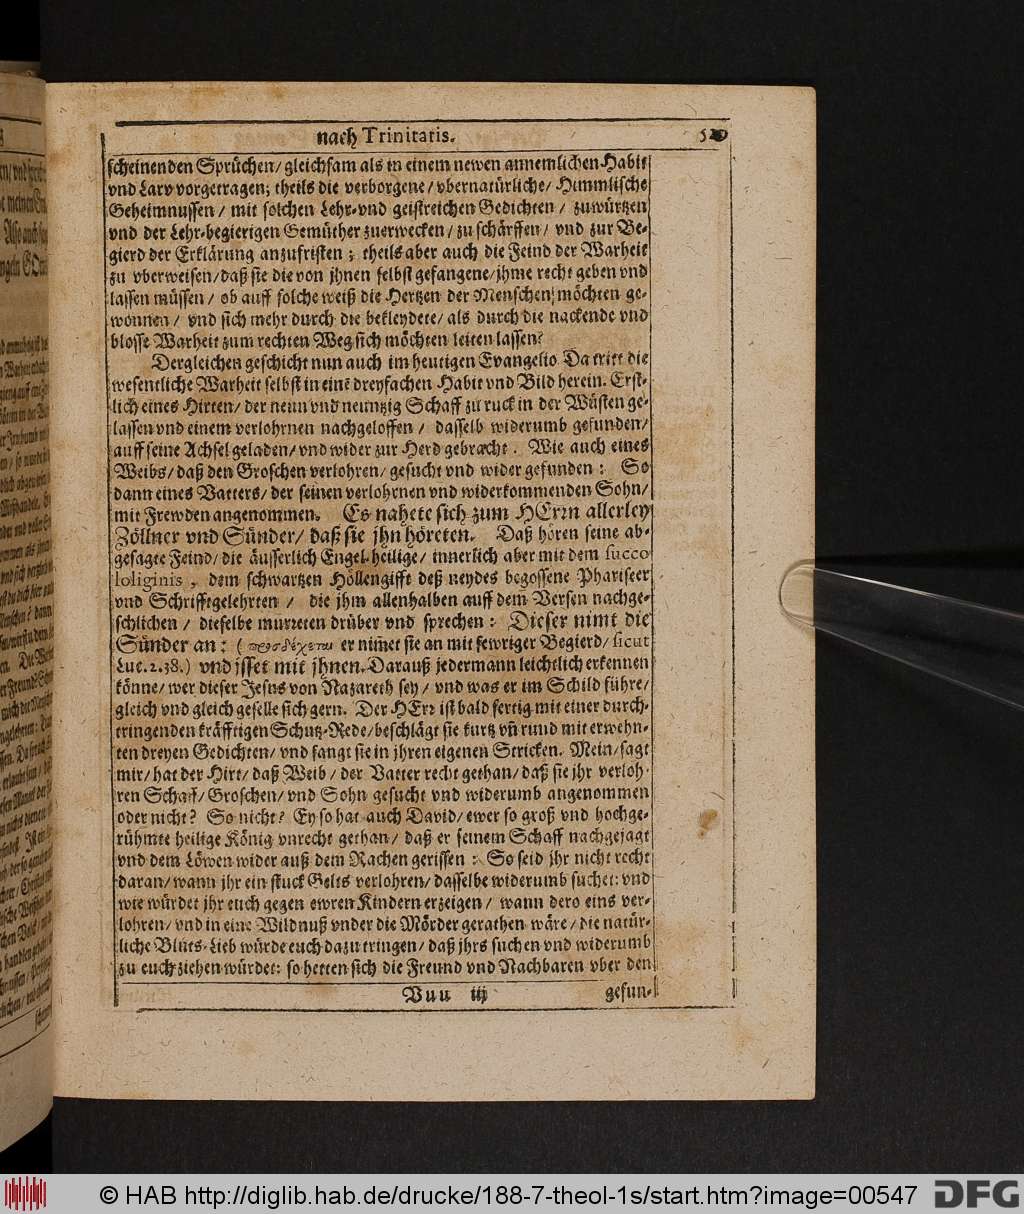 nach Trinitatis.
scheinenden Sprüchen/ gleichsam als in einem newen annemlichen Habit
vnd Larv vorgetragen; theils die verborgene/ vbernatürliche/ Himmlische
Geheimnussen/ mit solchen Lehr-vnd geistreichen Gedichten/ zuwürtzen
vnd der Lehr-begierigen Gemüther zuerwecken/ zu schärffen/ vnd zur Be-
gierd der Erklärung anzufristen; theils aber auch die Feind der Warheit
zu vberweisen/ daß sie die von jhnen selbst gefangene/ jhme recht geben vnd
lassen müssen/ ob auff solche weiß die Hertzen der Menschen möchten ge-
wonnen/ vnd sich mehr durch die bekleydete/ als durch die nackende vnd
blosse Warheit zum rechten Weg sich möchten leiten lassen?
Dergleichen geschicht nun auch im heutigen Evangelio. Da tritt die
wesentliche Warheit selbst in einē dreyfachen Habit vnd Bild herein. Erst-
lich eines Hirten/ der neun vnd neuntzig Schaff zu ruck in der Wüsten ge-
lassen vnd einem verlohrnen nachgeloffen/ dasselb widerumb gefunden/
auff seine Achsel geladen/ vnd wider zur Herd gebracht. Wie auch eines
Weibs/ daß den Groschen verlohren/ gesucht vnd wider gefunden: So
dann eines Vatters/ der seinen verlohrnen vnd widerkommenden Sohn/
mit Frewden angenommen. Es nahete sich zum HErrn allerley
Zöllner vnd Sünder/ daß sie jhn höreten. Daß hören seine ab-
gesagte Feind/ die äusserlich Engel-heilige/ innerlich aber mit dem succo
loliginis, dem schwartzen Höllengifft deß neydes begossene Phariseer
vnd Schrifftgelehrten/ die jhm allenhalben auff dem Versen nachge-
schlichen/ dieselbe murreten drüber vnd sprechen: Dieser nimt die
Sünder an: (προσδέχεται er nim̄et sie an mit fewriger Begierd/ sicut
Luc. 2. 38.) vnd jsset mit jhnen. Darauß jedermann leichtlich erkennen
könne/ wer dieser Jesus von Nazareth sey/ vnd was er im Schild führe/
gleich vnd gleich geselle sich gern. Der HErr ist bald fertig mit einer durch-
tringenden kräfftigen Schutz-Rede/ beschlägt sie kurtz vn̄ rund mit erwehn-
ten dreyen Gedichten/ vnd fangt sie in jhren eigenen Stricken. Mein/ sagt
mir/ hat der Hirt/ daß Weib/ der Vatter recht gethan/ daß sie jhr verloh-
ren Schaff/ Groschen/ vnd Sohn gesucht vnd widerumb angenommen
oder nicht? So nicht? Ey so hat auch David/ ewer so groß vnd hochge-
rühmte heilige König vnrecht gethan/ daß er seinem Schaff nachgejagt
vnd dem Löwen wider auß dem Rachen gerissen: So seid jhr nicht recht
daran/ wann jhr ein stuck Gelts verlohren/ dasselbe widerumb suchet: vnd
wie würdet jhr euch gegen ewren Kindern erzeigen/ wann dero eins ver-
lohren/ vnd in eine Wildnuß vnder die Mörder gerathen wäre/ die natür-
liche Bluts-Lieb würde euch dazu tringen/ daß jhrs suchen vnd widerumb
zu euch ziehen würdet: so hetten sich die Freund vnd Nachbaren vber den
Vuu iij gefun-
© HAB http://diglib.hab.de/drucke/188-7-theol-1s/start.htm?image=00547
DFG